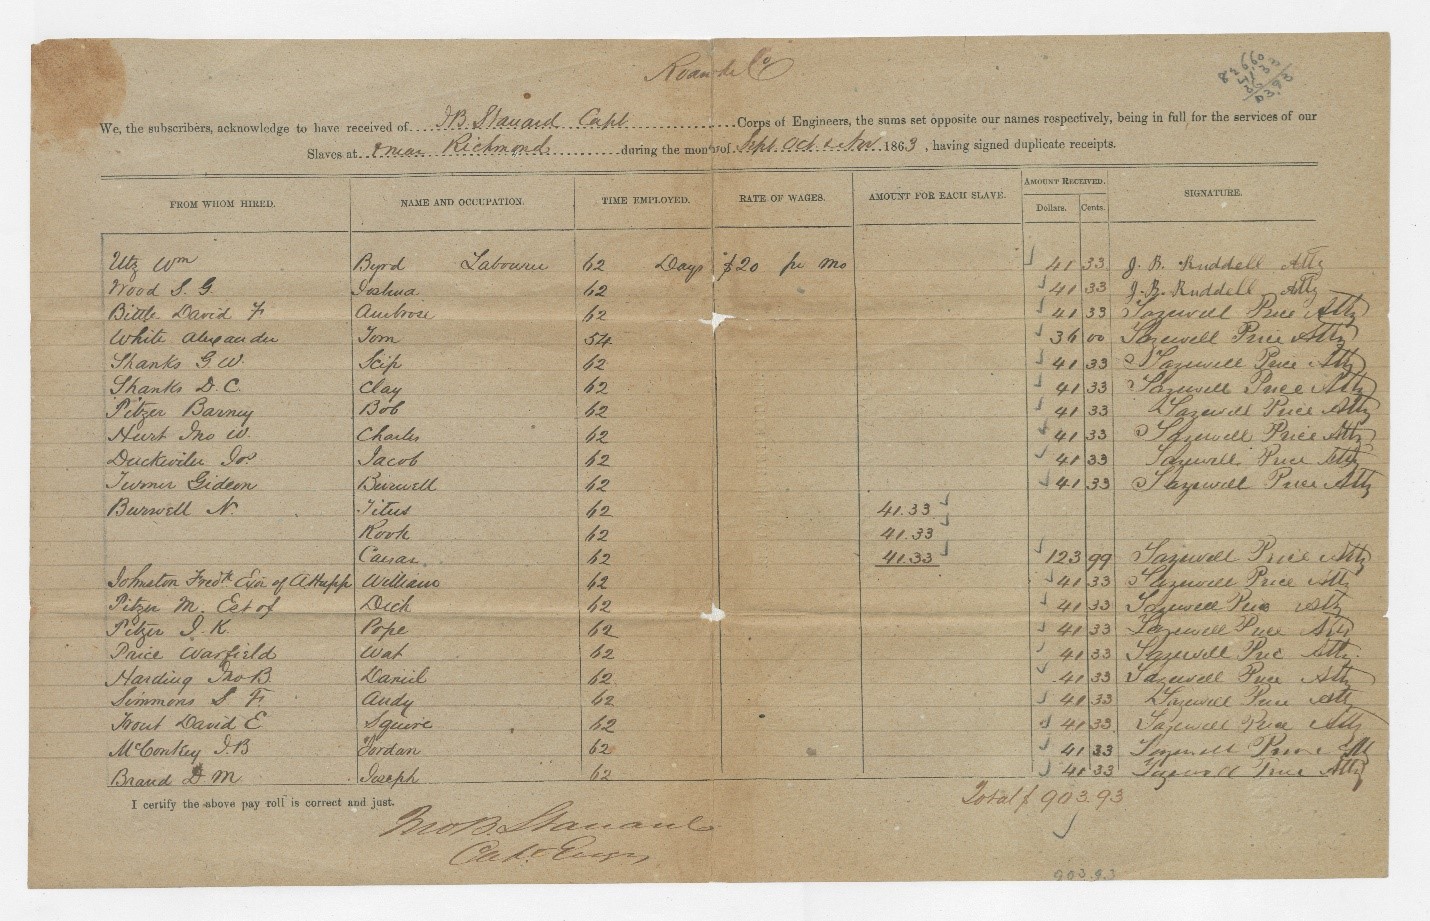 Roanoke Co
We, the subscribers, acknowledge to have received of J B Stanard Capt Corps of Engineers, the sums set opposite our names respectively, being in full for the services of our
Slaves at & near Richmond during the month of Sept Oct & Nov 1863, having signed duplicate receipts.
FROM WHOM HIRED. NAME AND OCCUPATION. TIME EMPLOYED. RATE OF WAGES. AMOUNT FOR EACH SLAVE. AMOUNT RECEIVED. Dollars. Cents. SIGNATURE.
Utz Wm Byrd Labourer 62 Days $20 pr Mo 41 33 J. R. Ruddell Atty
Wood S. G. Joshua 62 41 33 J. R. Ruddell Atty
Bittle David F Ambrose 62 41 33 Tazewell Price Atty
White Alexander Tom 54 36 00 Tazewell Price Atty
Shanks G. W. Scip 62 41 33 Tazewell Price Atty
Shanks D. C. Clay 62 41 33 Tazewell Price Atty
Pitzer Barney Bob 62 41 33 Tazewell Price Atty
Hurt Jno W. Charles 62 41 33 Tazewell Price Atty
Duckwiler Jos Jacob 62 41 33 Tazewell Price Atty
Turner Gideon Burwell 62 41 33 Tazewell Price Atty
Burwell N. Titus 62 41.33
Rook 62 41.33
Caesar 62 41.33 123 99 Tazewell Price Atty
Johnston Fredk Exor of A Hupp William 62 41 33 Tazewell Price Atty
Pitzer M. Est of Dick 62 41 33 Tazewell Price Atty
Pitzer J. K. Pope 62 41 33 Tazewell Price Atty
Price Warfield Wat 62 41 33 Tazewell Price Atty
Harding Jno B. Daniel 62 41 33 Tazewell Price Atty
Simmons S F. Andy 62 41 33 Tazewell Price Atty
Trout David E Squire 62 41 33 Tazewell Price Atty
McConkey J. B Jordan 62 41 33 Tazewell Price Atty
Brand D M Joseph 62 41 33 Tazewell Price Atty
I certify the above pay roll is correct and just. Total $ 903.93
Jno B. Stanard
Capt Engrs
903.93